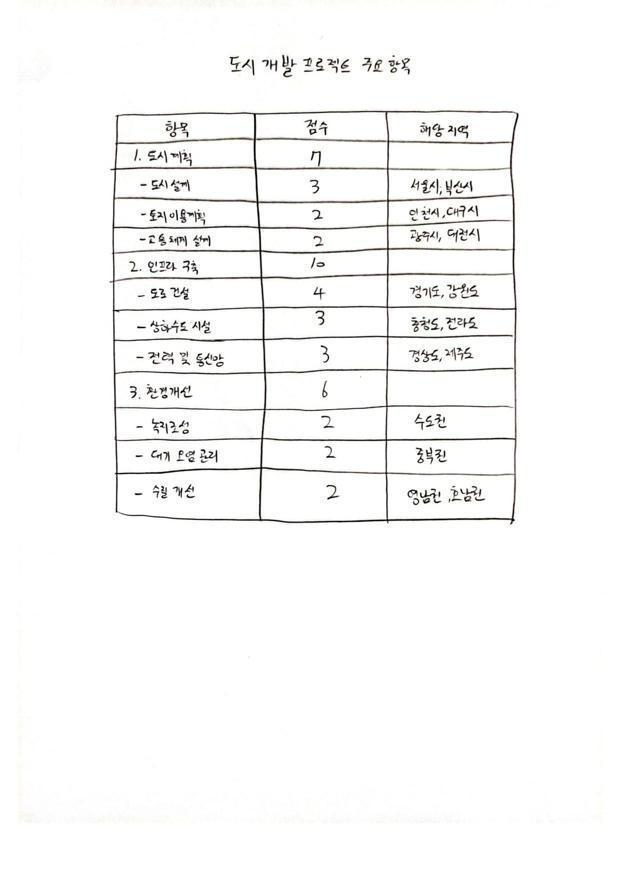 도시 개발 프로젝트 주요 항목
항목 점수 해당 지역
1. 도시계획 7
- 도시설계 3 서울시, 부산시
- 토지이용계획 2 인천시, 대구시
- 교통체계 설계 2 광주시, 대전시
2. 인프라 구축 10
- 도로 건설 4 경기도, 강원도
- 상하수도 시설 3 충청도, 전라도
- 전력 및 통신망 3 경상도, 제주도
3. 환경개선 6
- 녹지조성 2 수도권
- 대기 오염 관리 2 중부권
- 수질 개선 2 영남권, 호남권